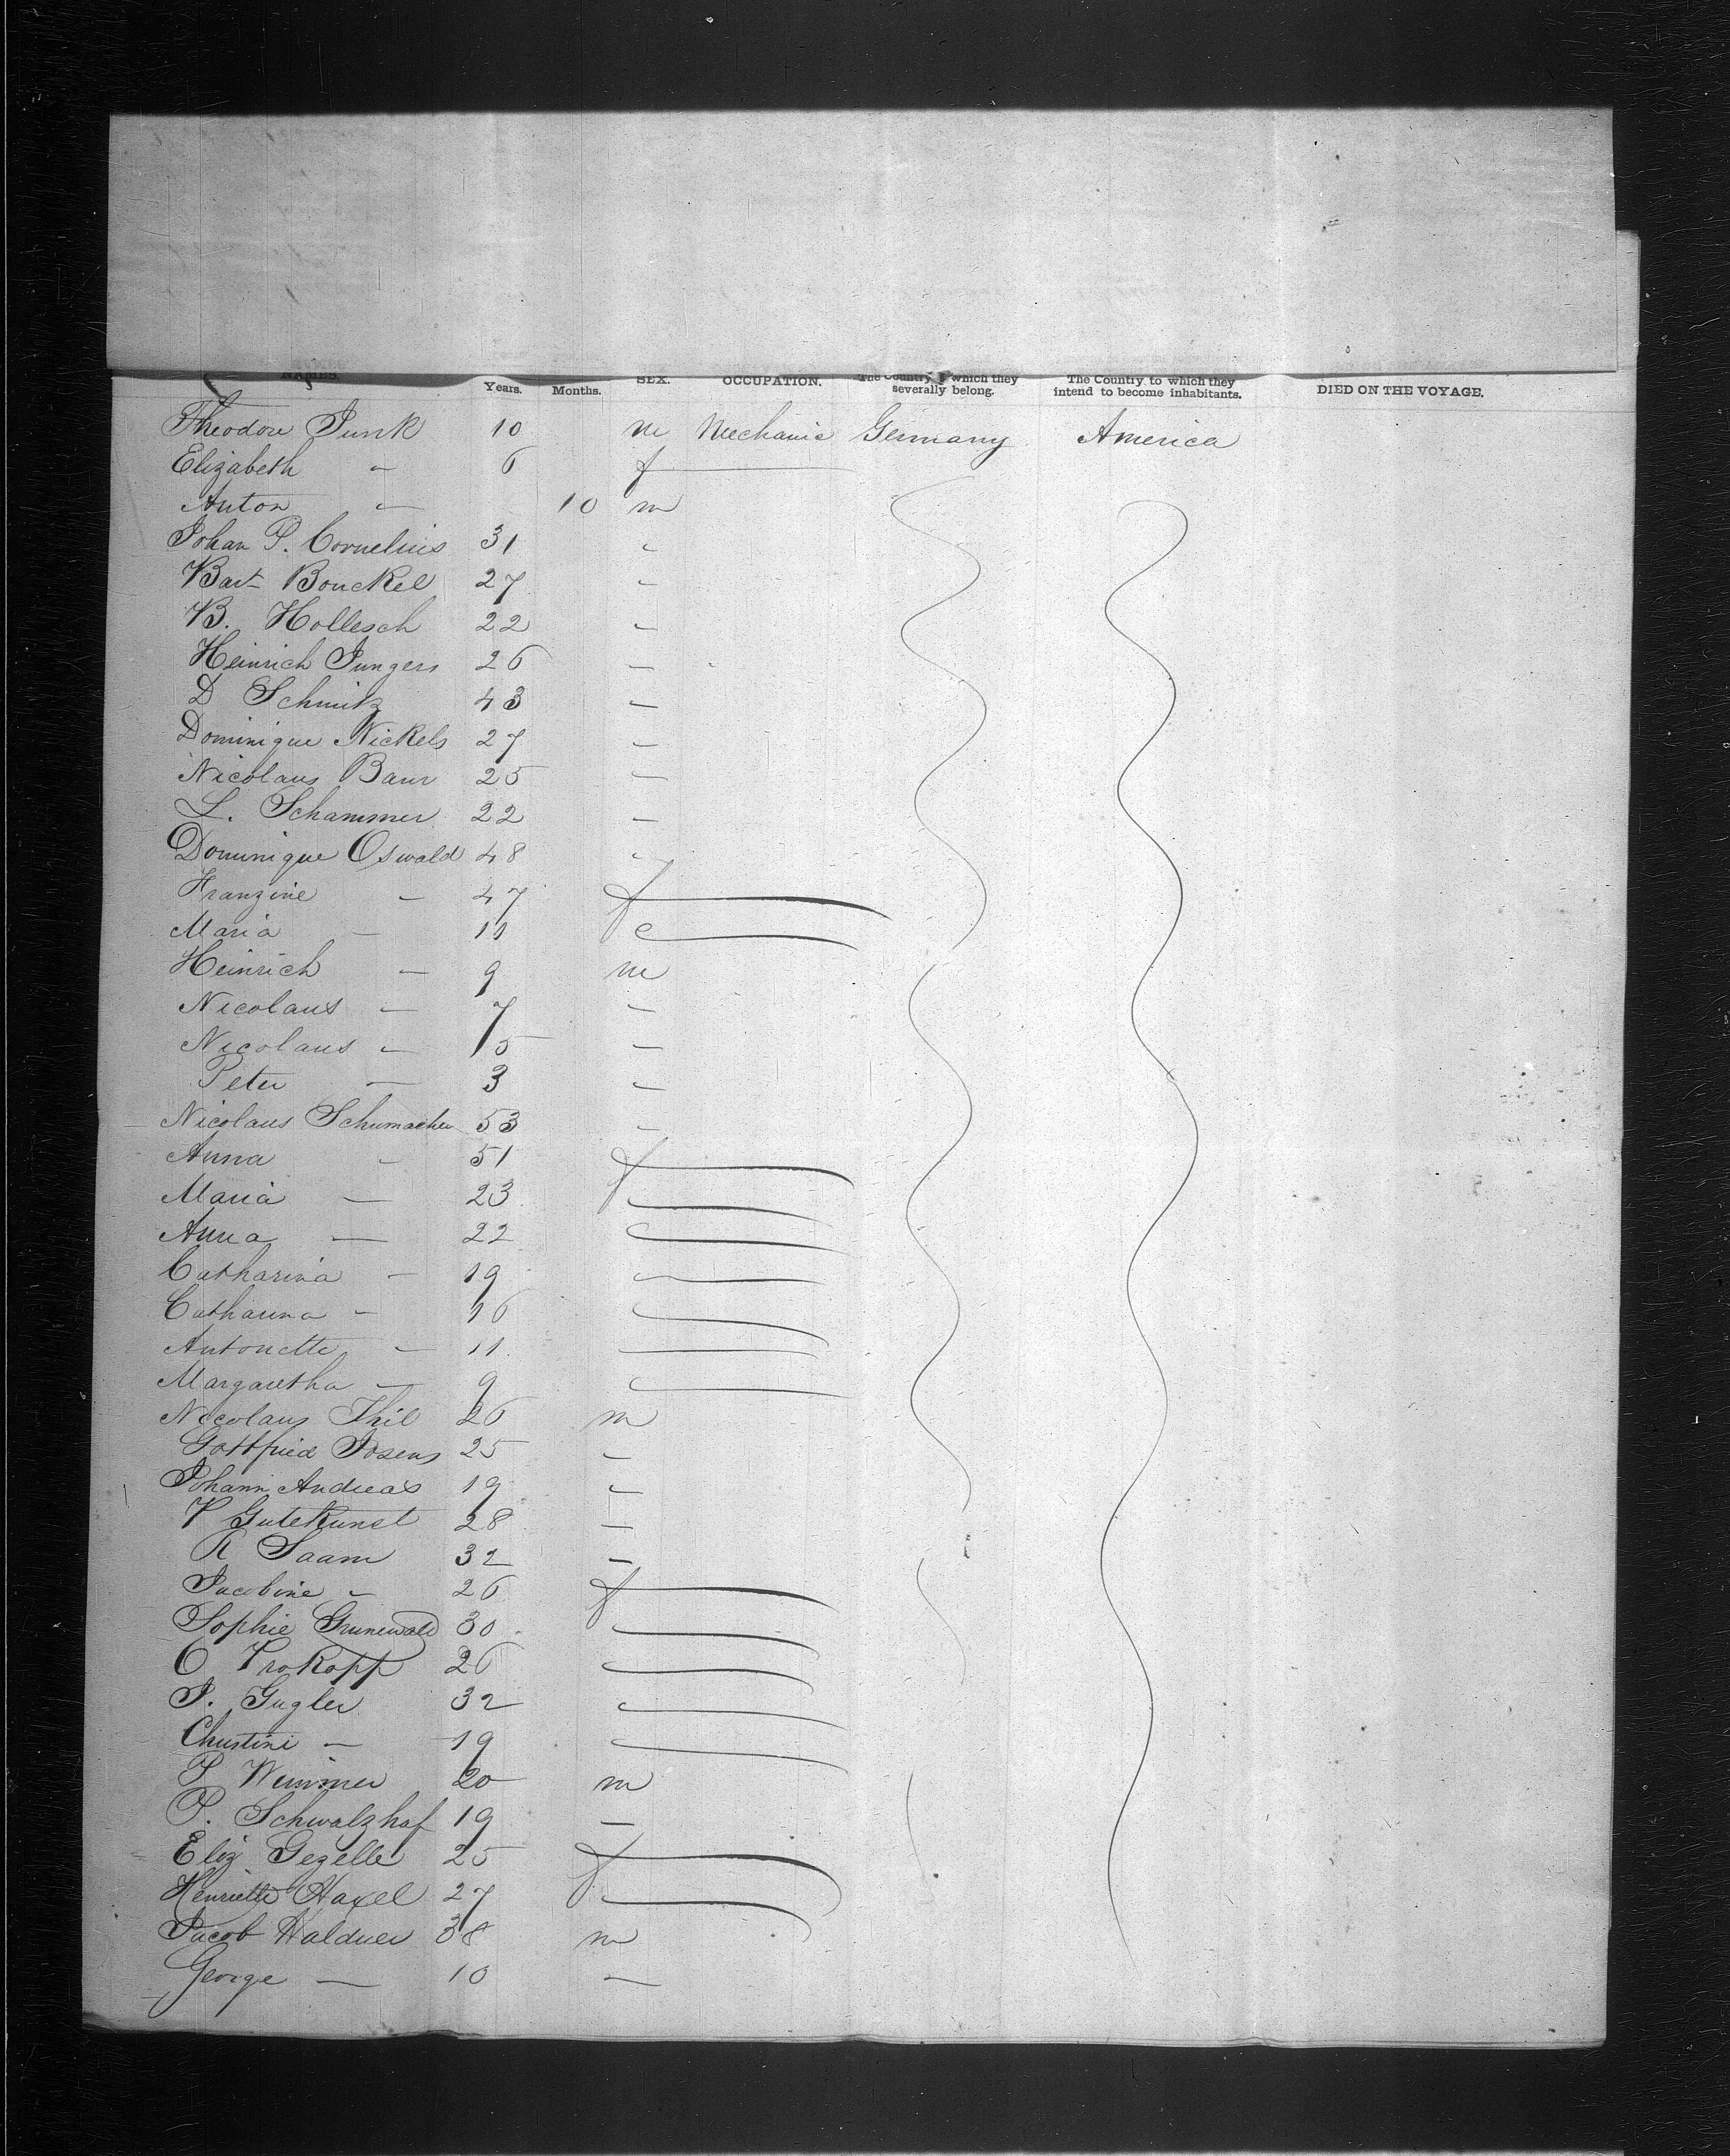 NAMES. Years. Months. SEX. OCCUPATION. The Country to which they severally belong. The Country to which they intend to become inhabitants. DIED ON THE VOYAGE.
Theodore Junk 10 m Mechanic Germany America
Elizabeth " 6 f
Anton — 10 m
Johan P. Cornelius 31 "
Bart Bouckel 27 "
B. Hollesch 22 "
Heinrich Jungers 26 —
D Schmitz 43 "
Dominique Nickels 27 —
Nicolaus Baur 25 —
L. Schammer 22 —
Dominique Oswald 48 "
Franzine — 47 f
Maria — 11 "
Heinrich — 9 m
Nicolaus — 7 "
Nicolaus — 15 —
Peter — 3 "
Nicolaus Schumacher 53 —
Anna — 51 f
Maria — 23
Anna — 22
Catharina — 19
Catharina — 16
Antonette — 11
Margaretha — 9
Nicolaus Thil 26 m
Gottfried Josens 25 —
Johann Andreas 19 —
P Gutekunst 28 —
R Saam 32 —
Jacobine " 26 f
Sophie Grunewald 30
C Prokopp 26
J. Gugler 32
Christine — 19
P Wimmer 20 m
P. Schwalzhof 19 —
Eliz Gezelle 25 f
Henriette Haxel 27
Jacob Haldner 38 m
George — 10 —